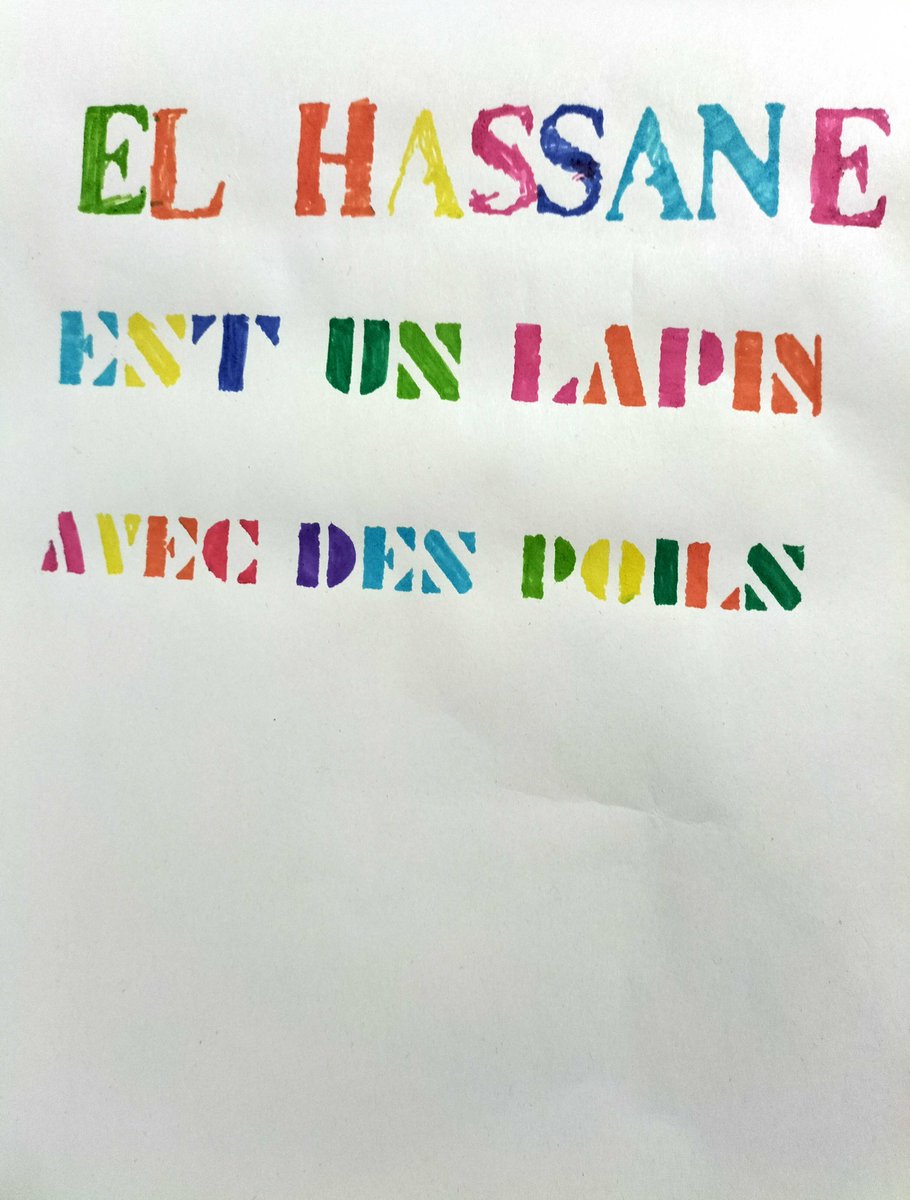 EL HASSANE
EST UN LAPIN
AVEC DES POILS